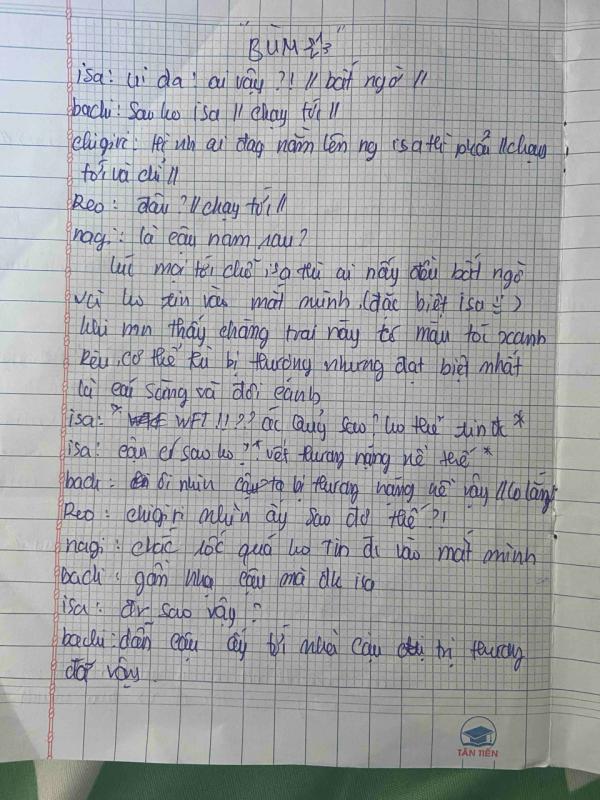 "BÙM"
isa: ui da! ai vậy ?! // bất ngờ //
bachi: Sao ko isa // chạy tới //
chigiri: hình ai đag nằm lên ng isa thì phải // chạy
tới và chỉ //
Reo: đâu ? // chạy tới //
nagi: là cậu nam sau?
lúc mọi tới chỗ isa thì ai nấy đều bất ngờ
và ko tin vào mắt mình (đặc biệt isa)
khi mn thấy chàng trai này tó màu tối xanh
rêu, cơ thể thì bị thương nhưng đạt biệt nhất
là cái sừng và đôi cánh
isa: * WFT !!?? ác quỷ sao? ko thể tin đc *
isa: cậu có sao ko ? * vết thương nặng nề thế *
bachi: ôi nhìn cậu ta bị thương nặng nề vậy // lo lắng
Reo: chigiri nhìn ấy sao đó thế ?!
nagi: chắc sốc quá ko tin đi vào mắt mình
bachi: gần nhà cậu mà đk isa
isa: ờ sao vậy ?
bachi: dẫn cậu ấy tới nhà cậu trị thương
đã vậy
TÂN TIẾN